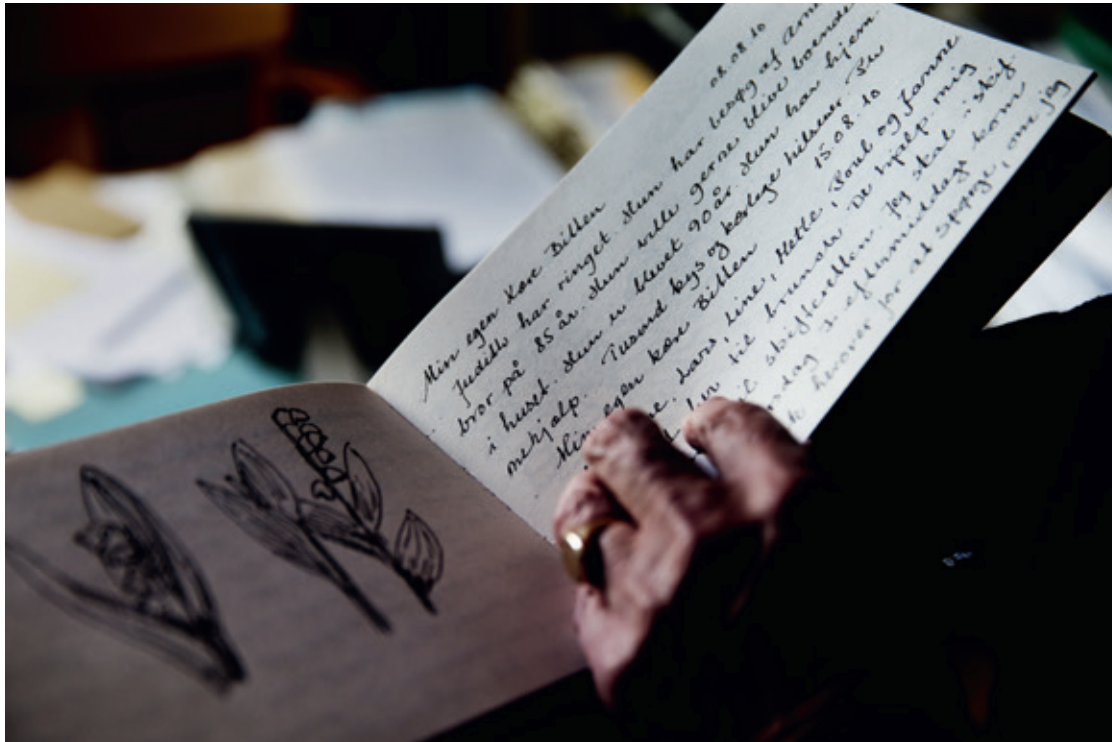 08.08.10
Min egen kære Bitten
Judith har ringet. Hun har besøg af
bror på 85 år. Hun ville gerne blive boende
i huset. Hun er blevet 90 år. Hun har hjem-
mehjælp. Tusind kys og kærlige hilsener
15.08.10
Min egen kære Bitten
Lars, Line, Mette, Poul og Hanne
til brunch. De hjalp mig
skiftecellen. Jeg skal skif.
eftermiddags kom
herover for at spørge, om jeg